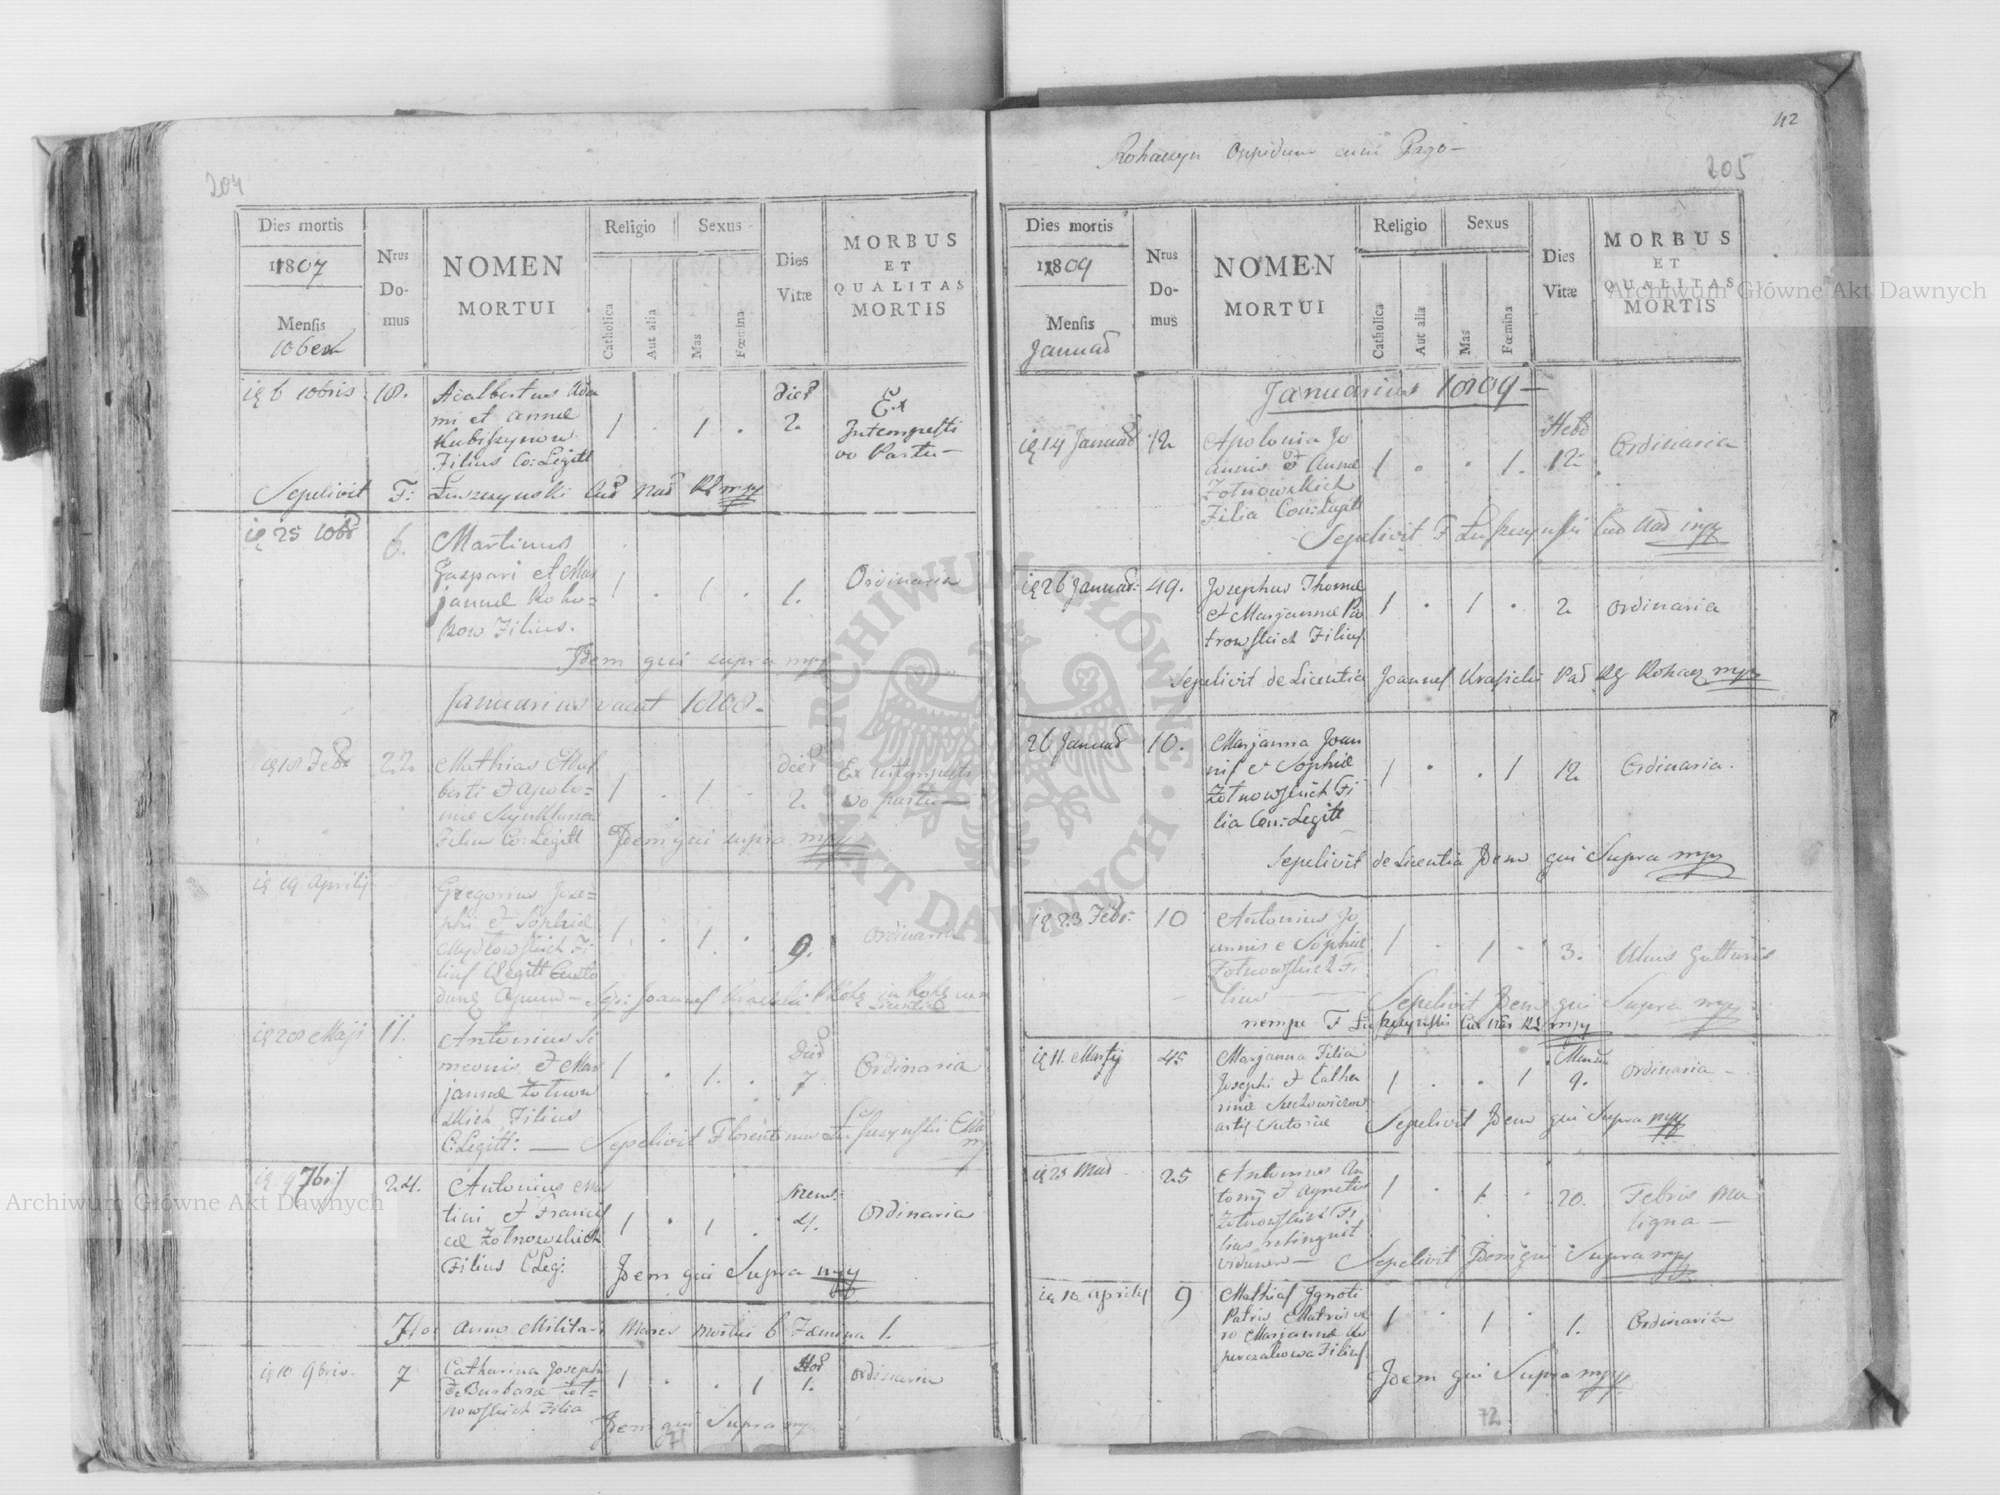 204
Dies mortis
1807
Mensis
10bris
Nrus Domus
NOMEN
MORTUI
Religio
Sexus
Catholica
Aut alia
Mas
Fœmina
Dies Vitæ
MORBUS
ET
QUALITAS
MORTIS
6 10bris 18.
Adalbertus Ada
mi et Annæ
Filius Co: Legitt
1 . 1 .
Dies
2.
Ex
Intempesti
vo Partu—
Sepelivit F: Łuszczynski Cur Nad RL mpp
25 10bris 6.
Martinus
Gaspari et Mar
jannæ Koko=
Filius.
1 . 1 . 1.
Ordinaria
Idem qui supra mpp
Januarius vacat 1808.
18 Febr 22
Mathias Adal
berti et Apolo=
niæ
Filius Co: Legitt
1 . 1 .
Dies
2.
Ex intempesti
vo partu—
Idem qui supra mpp
19 Aprilis
Gregorius Jose=
phi et Sophiæ
Fi
lius
1 . 1 . 9.
Ordinaria
28 Maji 11.
Antonius Si
meonis et Mar
jannæ Żotnow
skich Filius
C:Legitt: — Sepelivit Florentinus
1 . 1 .
Dies
7
Ordinaria
9 7bris 24.
Antonius Mar
tini et Francis
cæ Żotnowskich
Filius CLeg:
1 . 1 .
Mens:
4.
Ordinaria
Idem qui Supra mpp
Hoc Anno Mares Mortui 6 Fæmina 1.
10 9bris 7
Catharina Josephi
et Barbaræ Żot=
nowskich Filia
1 . . 1
1.
ordinaria
Idem qui Supra mpp
71
42
Rohaczyn Oppidum cum Pago—
205
Dies mortis
1809
Mensis
Januar
Nrus Domus
NOMEN
MORTUI
Religio
Sexus
Catholica
Aut alia
Mas
Fœmina
Dies Vitæ
MORBUS
ET
QUALITAS
MORTIS
Januarius 1809—
14 Januar 12
Apolonia Jo
annis et Annæ
Żotnowskich
Filia Con:Legitt
1 . . 1.
Hebd
12
Ordinaria
Sepelivit F Łuszczynski Cur Nad mpp
26 Januar: 49.
Josephus Thomæ
et Marjannæ Pio
trowskich Filius
1 . 1 . 2
ordinaria
Sepelivit de Licentia Joannes Krasicki Par RG Rohacz mpp
26 Januar 10.
Marjanna Joan
nis et Sophiæ
Żotnowskich Fi
lia Con:Legitt
1 . . 1 12
Ordinaria.
Sepelivit de Licentia Idem qui Supra mpp
23 Febr: 10
Antonius Jo
annis e Sophiæ
Żotnowskich Fi
lius
1 . 1 . 3.
Ulcus Gutturis
Sepelivit Idem qui Supra mpp
nempe F Łuszczynski Cur Nad RL mpp
11 Martij 45
Marjanna Filia
Josephi et Catha
rinæ
1 . . 1
Mens
9.
ordinaria—
Sepelivit Idem qui Supra mpp
25
Antonius An
tonij et Agnetis
Żotnowskich Fi
lius relinquit
viduam—
1 . 1 . 20.
Febris Ma
ligna—
Sepelivit Idem qui Supra mpp
Aprilis 9
Mathias Ignoti
Patris Matris ve
ro Marjannæ
Filius
1 . 1 . 1.
Ordinaria
Idem qui Supra mpp
72
ARCHIWUM GŁÓWNE AKT DAWNYCH
Archiwum Główne Akt Dawnych
Archiwum Główne Akt Dawnych